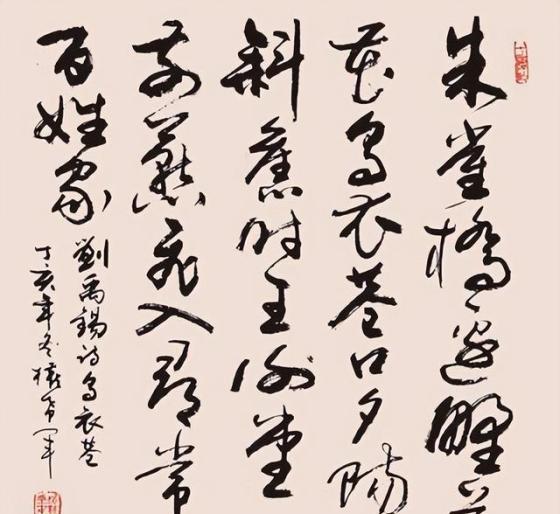 朱雀橋邊野草
花烏衣巷口夕陽
斜舊時王謝堂
前燕飛入尋常
百姓家
劉禹錫詩烏衣巷
丁亥年冬